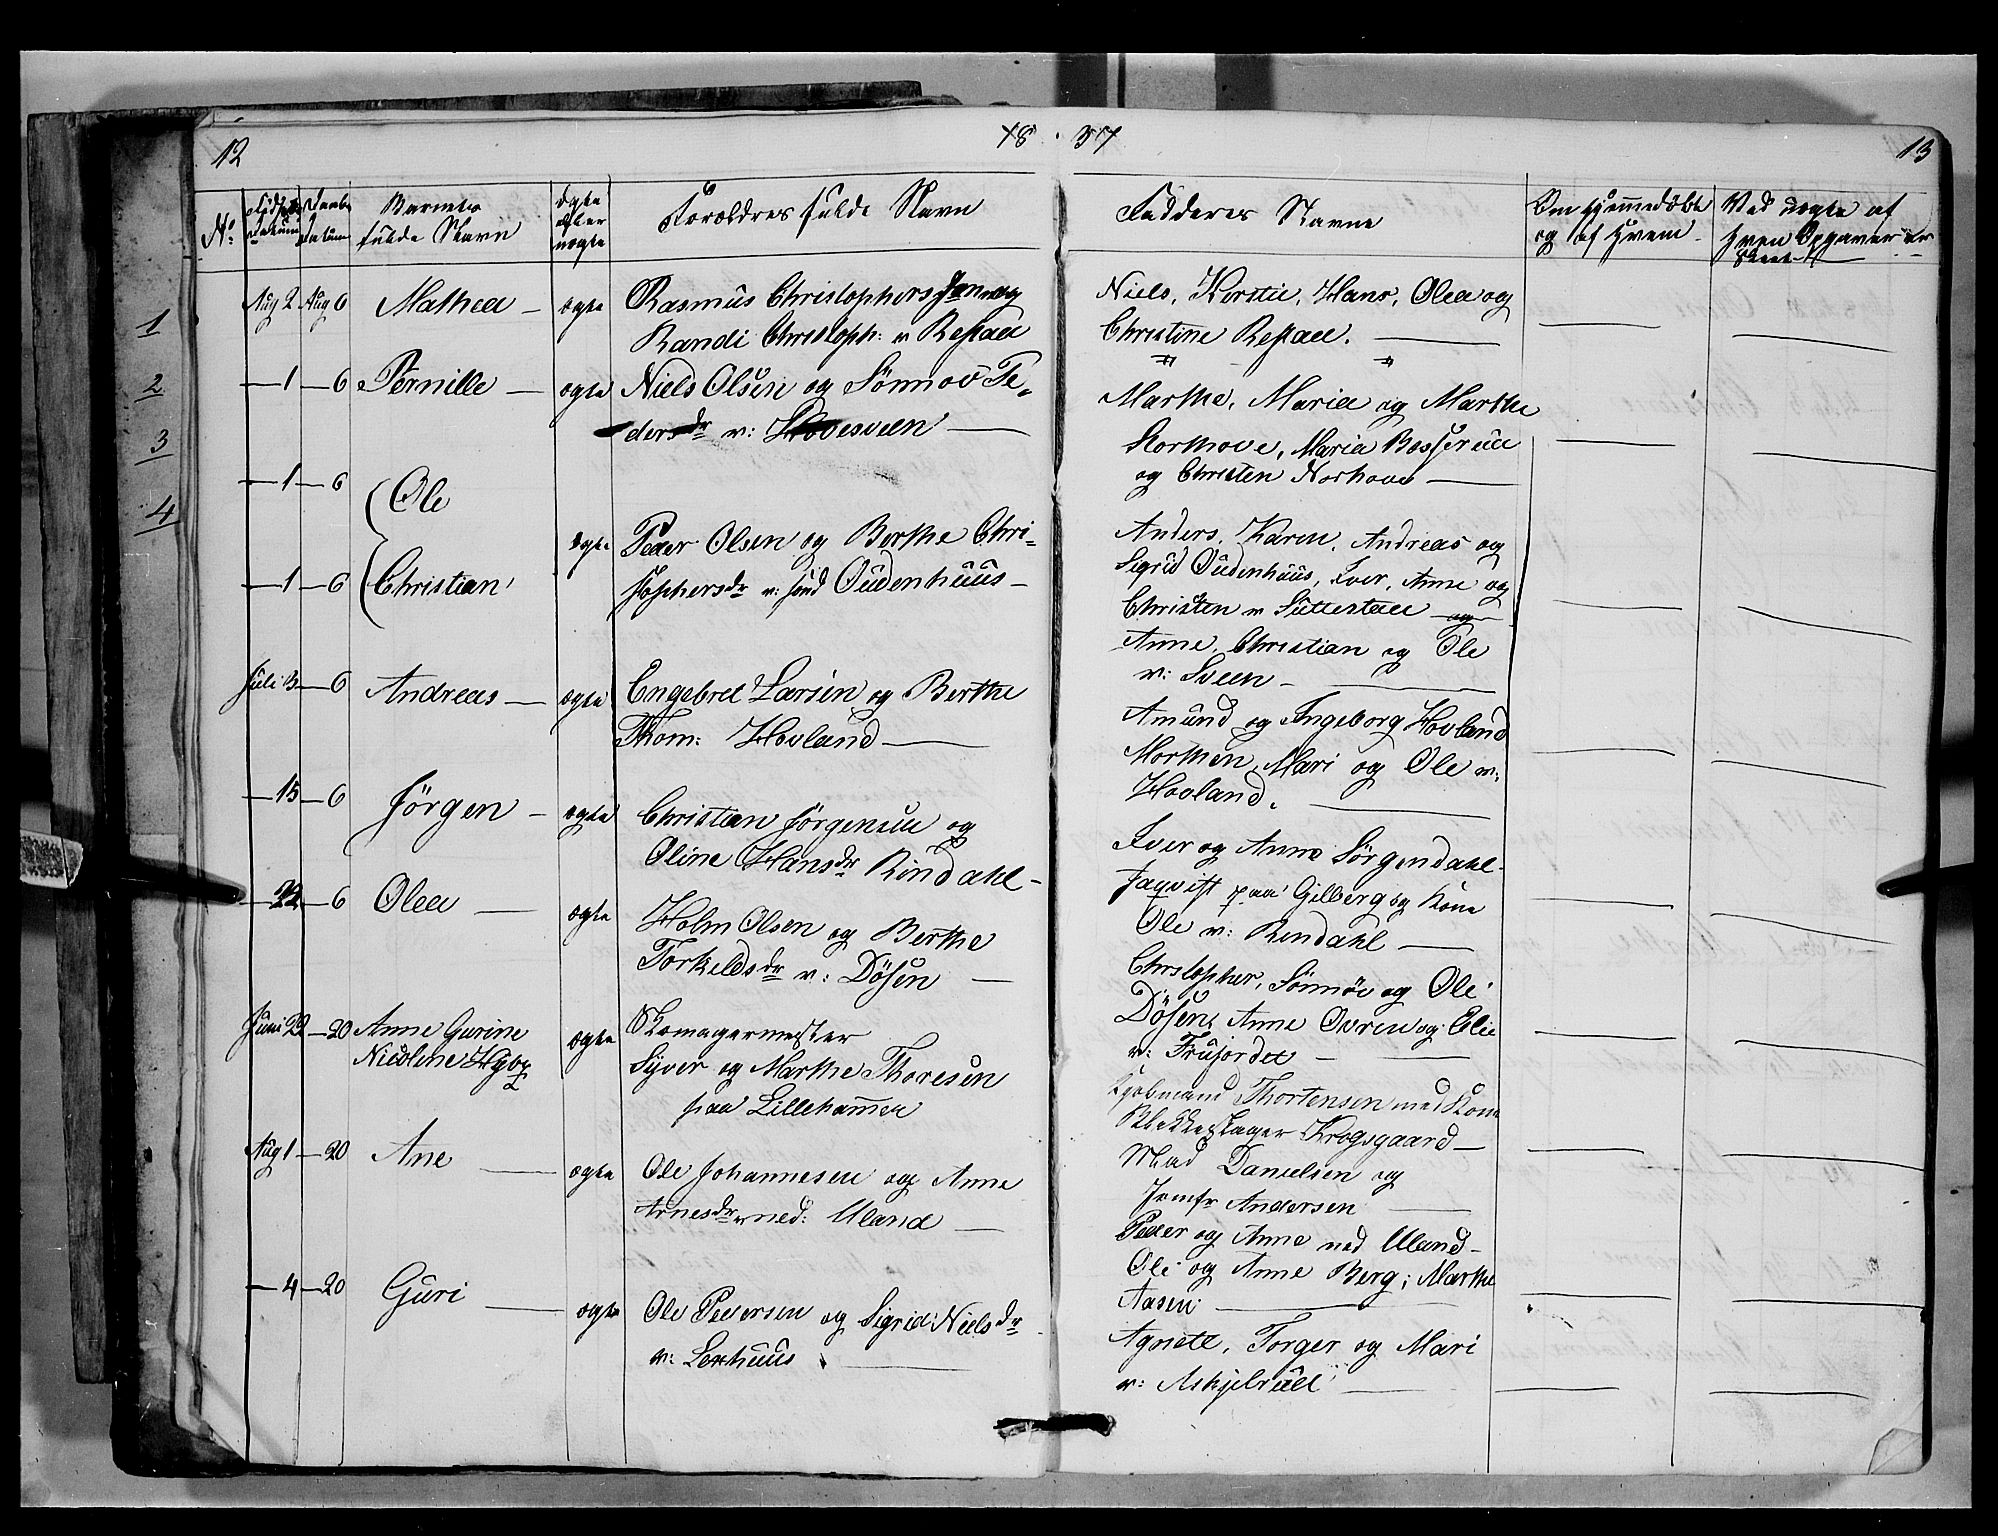 12
18 37
13
No
Fødsels Datum
Daabs Datum
Barnets fulde Navn
ægte eller uægte
Forældres fulde Navn
Fadderes Navne
Om hjemmedøbt og af hvem
Ved nogle af hven Opgaver er skeet
1
2
3
4
Aug 2 Aug 6 Mathea — ægte Rasmus Christophersen og
Randi Christoph: v
Niels, Kerstie, Hans, Olea og
Christine
— 1 — 6 Pernille — ægte Niels Olsen og Sønnov Pe-
dersdr v: Hovesveen —
Marthe, Maria og Marthe
Korthove, Maria
og Christen Norhove —
— 1 — 6 Ole
— 1 — 6 Christian
ægte Peder Olsen og Berthe Chri-
stophersdr v: sønd Oudenhuus —
Anders, Karen, Andreas og
Sigrid Oudenhuus, Iver, Anne og
Christen v Sutterstad og
Anne, Christian og Ole
v: Sveen —
Juli 3 — 6 Andreas — ægte Engebret Larsen og Berthe
Thom: Hovland —
Amund og Ingeborg Hovland
Morthen, Mari og Ole v:
Hovland. —
— 15 — 6 Jørgen — ægte Christian Jørgensen og
Oline Hansdr Rindahl —
Iver og Anne Jørgendahl.
paa Gilberg og Kone
Ole v: Rindahl —
— 22 — 6 Olea — ægte Holm Olsen og Berthe
Torkeldsdr v: Døsen —
Christopher, Sønnøv og Ole
Døsen, Anne Ovren og Elie
v: Frujordet —
Juni 22 — 20 Anne Gurine
Nicoline
ægte Skomagermester
Syver og Marthe Thoresen
paa Lillehamer
Kjøbmand Thortensen med Kone
Blikkeslager Krogsgaard —
Mad Danielsen og
Jomfr Andersen —
Aug 1 — 20 Ane — ægte Ole Johannesen og Anne
Arnesdr v ned: Uland —
Peder og Anne ned Uland —
Ole og Anne Berg; Marthe
Aasen. —
— 4 — 20 Guri — ægte Ole Pedersen og Sigrid Nielsdr
v: Lerhuus —
Agnete, Torger og Mari
v: Askjelrud —